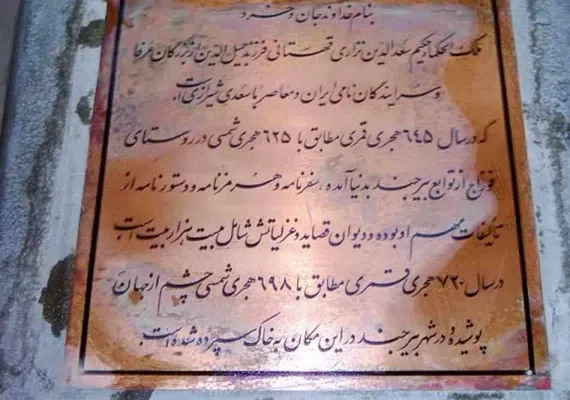 بنام خداوند جان و خرد
ملک الحکما حکیم سعدالدین نزاری قهستانی فرزند جمیل الدین از بزرگان عرفا
و سرایندگان نامی ایران و معاصر با سعدی شیرازی است
که در سال ۶۴۵ هجری قمری مطابق با ۶۲۵ هجری شمسی در روستای
فوداج از توابع بیرجند بدنیا آمده ، سفرنامه و هرمزنامه و دستورنامه از
تألیفات مهم او بوده و دیوان قصاید و غزلیاتش شامل بیست هزار بیت است
در سال ۷۲۰ هجری قمری مطابق با ۶۹۸ هجری شمسی چشم از جهان
پوشیده و در شهر بیرجند در این مکان به خاک سپرده شده است .